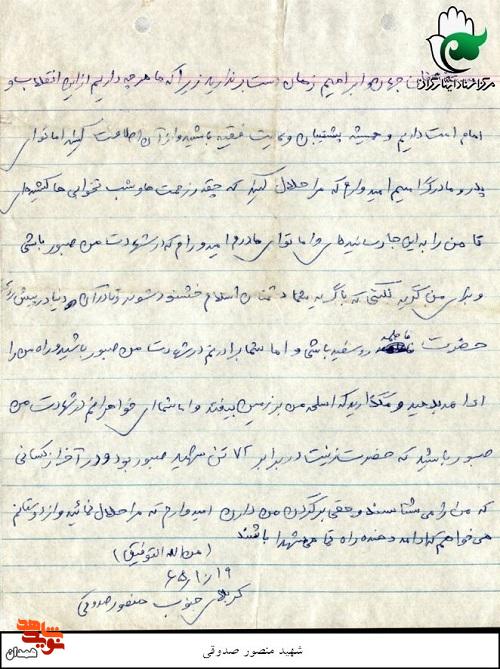 جهان و ابراهیم زمان است برندارید زیرا که ما هرچه داریم از این انقلاب و
امام امت داریم و همیشه پشتیبان ولایت فقیه باشید و از آن اطاعت کنید اما تو ای
پدر و مادر گرامیم امیدوارم که مرا حلال کنید که چقدر زحمت ها و شب نخوابی ها کشیده‌ای
تا من را به این جا رسانیده‌ای و اما تو ای مادرم امیدورام که در شهادت من صبور باشی
و برای من گریه نکنی که با گریه شما دشمنان اسلام خشنود شوند و تا در آن دنیا در پیش
حضرت فاطمه رو سفید باشی و اما شما برادرانم در شهادت من صبور باشید و راه من را
ادامه بدهید و مگذارید که اسلحه من بر زمین بیفتد و اما شما ای خواهرانم در شهادت من
صبور باشید که حضرت زینب در برابر ۷۲ تن شهید صبور بود و در آخر از کسانی
که من را می شناسند و حقی بر گردن من دارن امیدوارم که مرا حلال نمائید و از دوستانم
می خواهم که ادامه دهنده راه تمامی شهدا باشند
(من الله التوفیق)
۶۵/۱۰/۱۹
کربلای جنوب منصور صدوقی
شهید منصور صدوقی
نوید شاهد
همدان